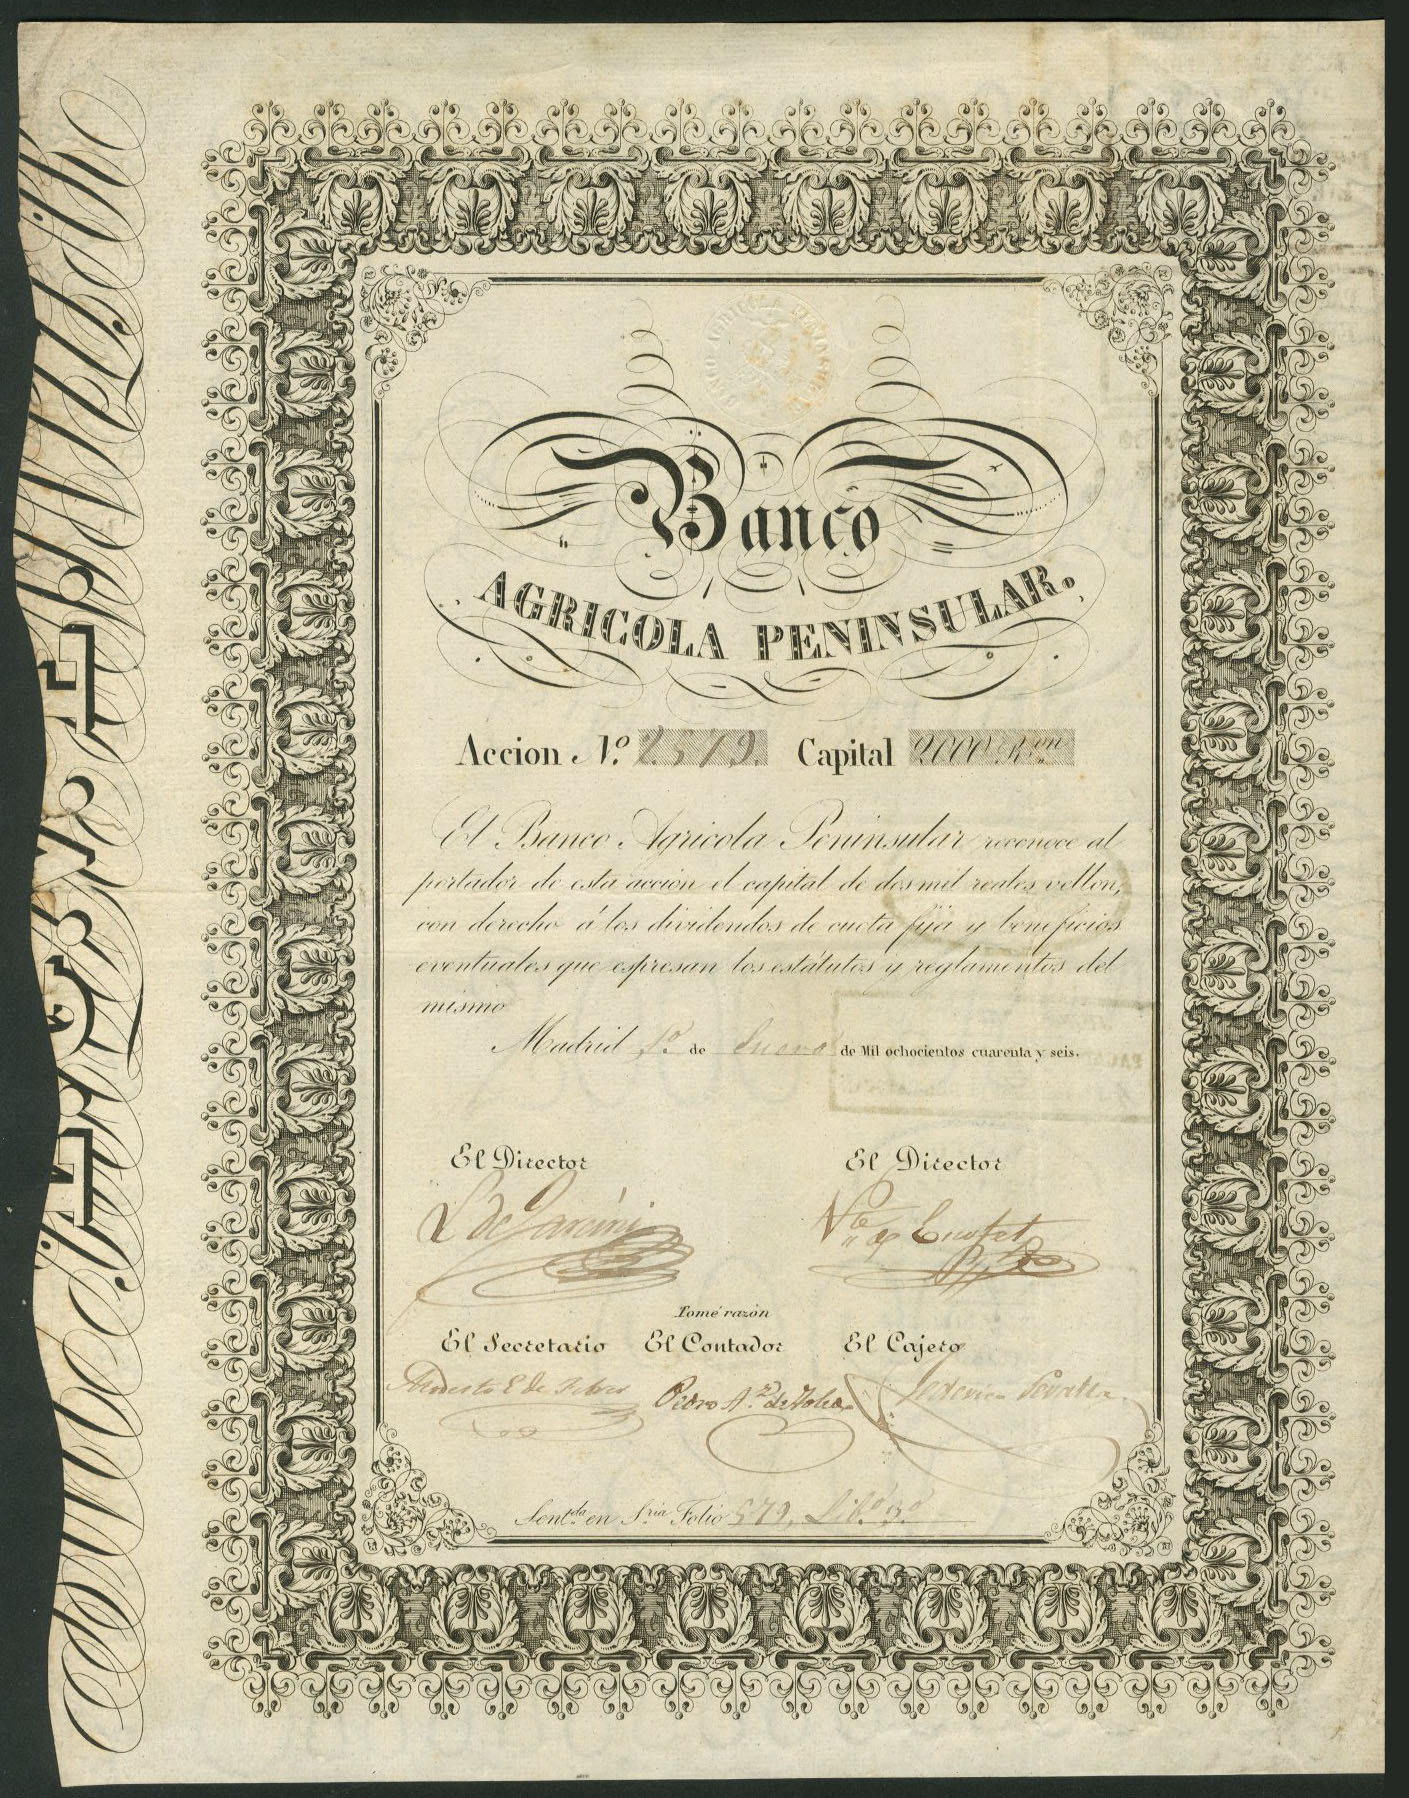 Banco
AGRICOLA PENINSULAR.
Accion Nº 2.579. Capital 2000 Rs. von
El Banco Agricola Peninsular reconoce al
portador de esta accion el capital de dos mil reales vellon,
con derecho á los dividendos de cuota fija y beneficios
eventuales que espresan los estátutos y reglamentos del
mismo
Madrid 1º de Enero de Mil ochocientos cuarenta y seis.
El Director El Director
Tomé razón
El Secretario El Contador El Cajero
Sentda en Sria Folio 579, Libº 3º